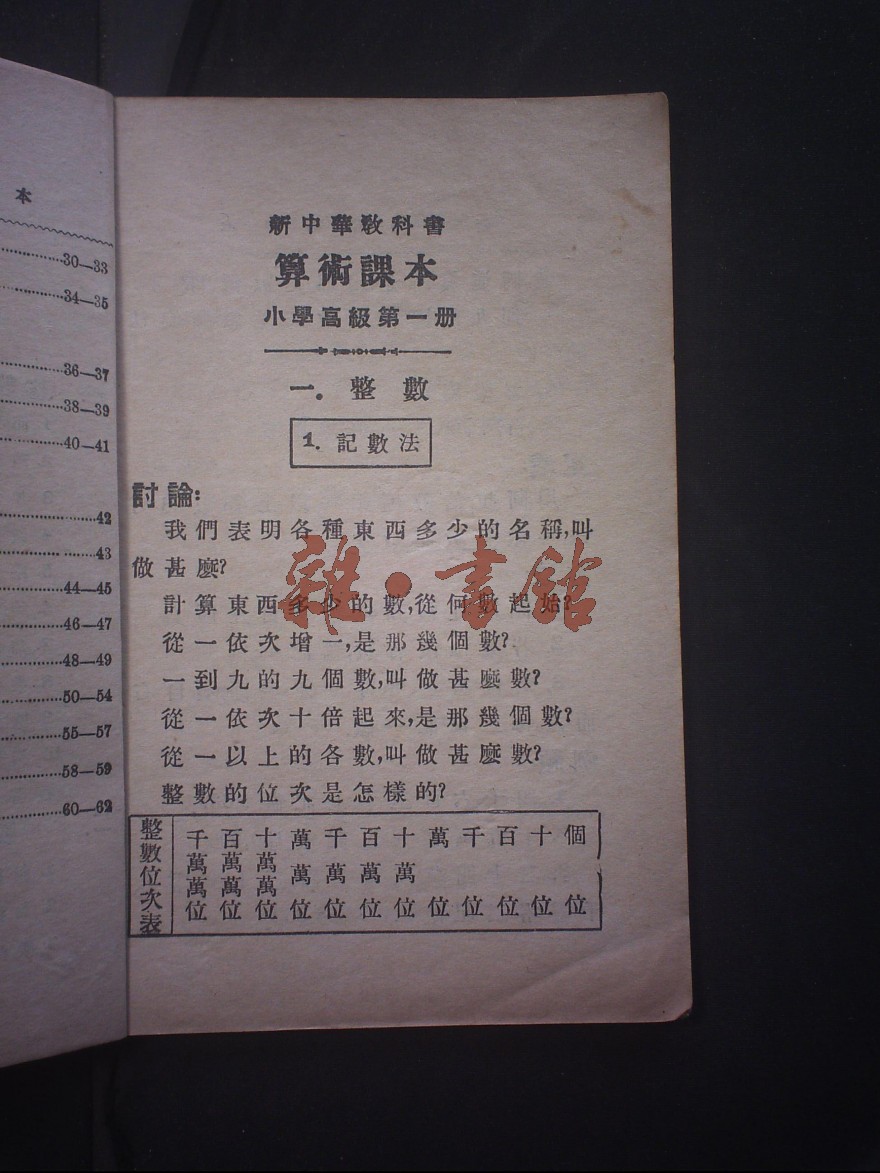 本
30—33
34—35
36—37
38—39
40—41
42
43
44—45
46—47
48—49
50—54
55—57
58—59
60—62
新中華教科書
算術課本
小學高級第一册
一. 整數
1. 記數法
討論:
我們表明各種東西多少的名稱,叫
做甚麼?
計算東西多少的數,從何數起始?
從一依次增一,是那幾個數?
一到九的九個數,叫做甚麼數?
從一依次十倍起來,是那幾個數?
從一以上的各數,叫做甚麼數?
整數的位次是怎樣的?
整數位次表
千萬萬位 百萬萬位 十萬萬位 萬萬位 千萬位 百萬位 十萬位 萬位 千位 百位 十位 個位
雜·書館